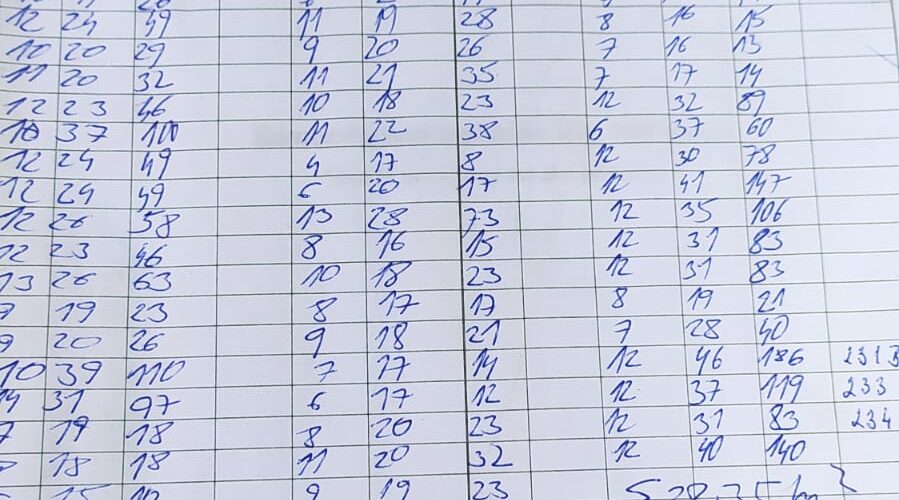 12 24 49 11 19 28 8 16 15
10 20 29 9 20 26 7 16 13
11 20 32 11 21 35 7 17 14
12 23 46 10 18 23 12 32 89
37 100 11 22 38 6 37 60
12 24 49 4 17 8 12 30 78
12 24 49 6 20 17 12 41 147
12 26 58 13 28 73 12 35 106
12 23 46 8 16 15 12 31 83
13 26 63 10 18 23 12 31 83
19 23 8 17 17 8 19 21
9 20 26 9 18 21 7 28 40
10 39 110 7 17 14 12 46 186 231
14 31 97 6 17 12 12 37 119 233
19 18 8 20 23 12 31 83 234
18 18 11 20 32 12 40 140
15 9 19 23